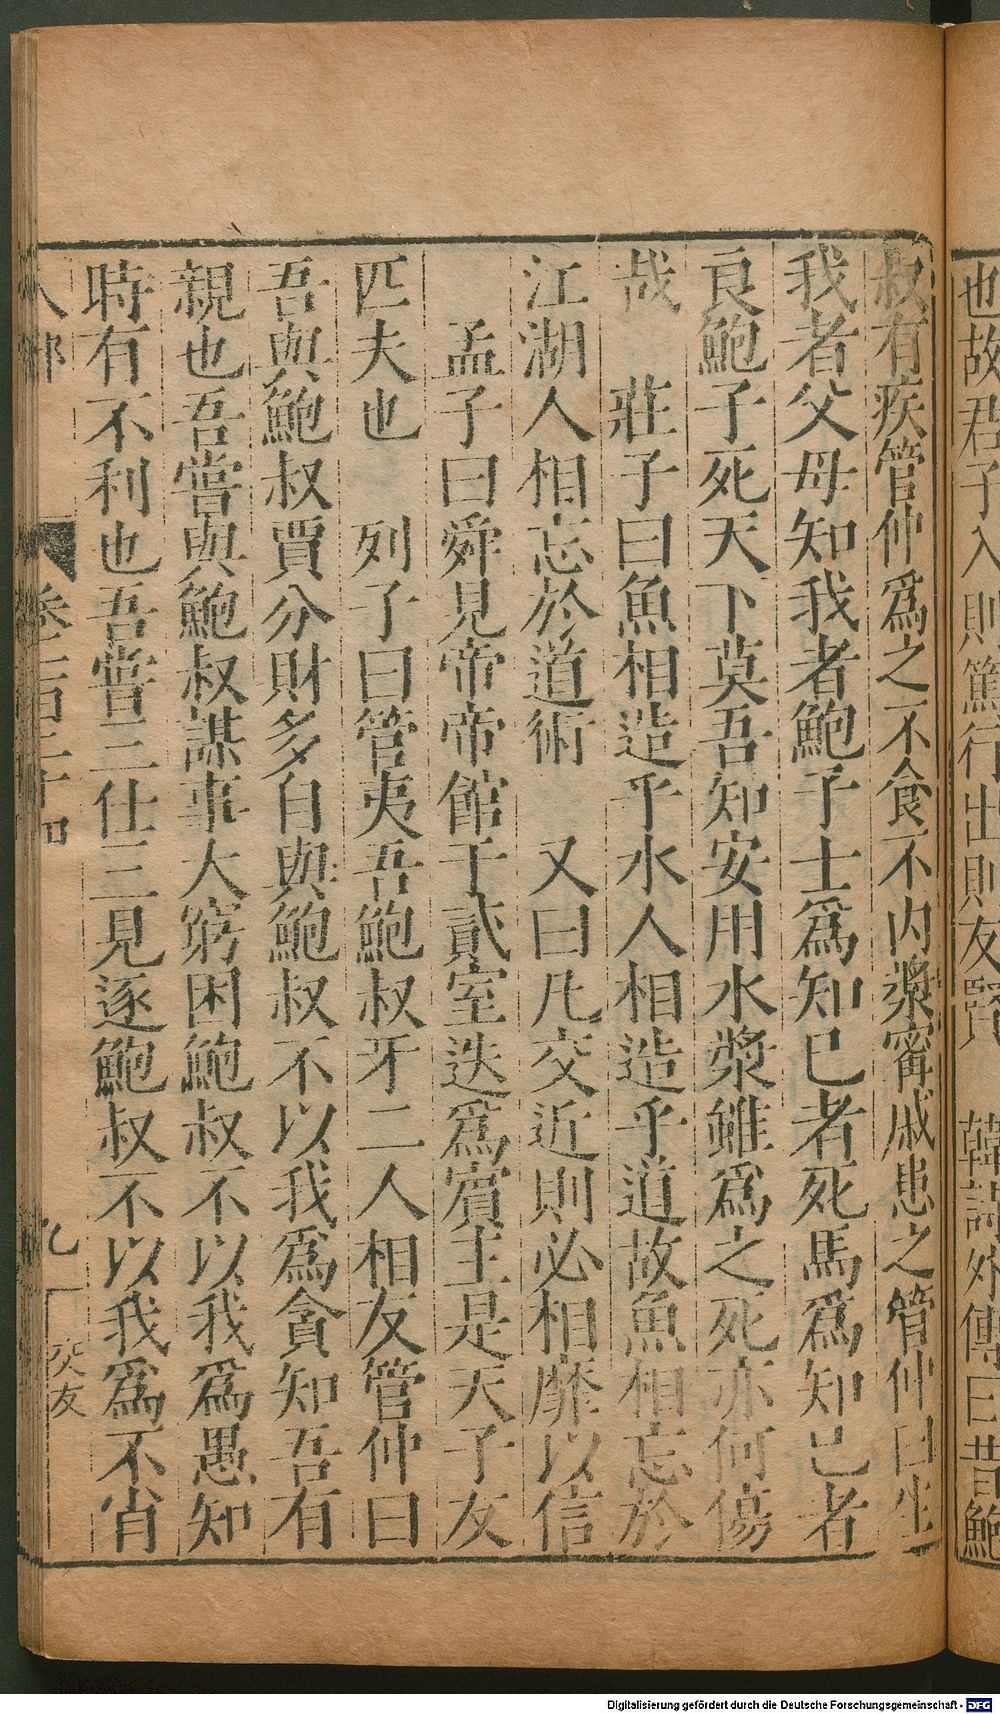 也故君子入則篤行出則友賢　韓詩外傳曰昔鮑
叔有疾管仲爲之不食不内漿甯戚患之管仲曰生
我者父母知我者鮑子士爲知已者死馬爲知已者
良鮑子死天下莫吾知安用水漿雖爲之死亦何傷
哉　莊子曰魚相造乎水人相造乎道故魚相忘於
江湖人相忘於道術　又曰凡交近則必相靡以信
孟子曰舜見帝帝館于貳室迭爲賓主是天子友
匹夫也　列子曰管夷吾鮑叔牙二人相友管仲曰
吾與鮑叔賈分財多自與鮑叔不以我爲貪知吾有
親也吾嘗與鮑叔謀事大窮困鮑叔不以我爲愚知
時有不利也吾嘗三仕三見逐鮑叔不以我爲不肖
人部　卷二百三十四　九　交友
Digitalisierung gefördert durch die Deutsche Forschungsgemeinschaft - DFG